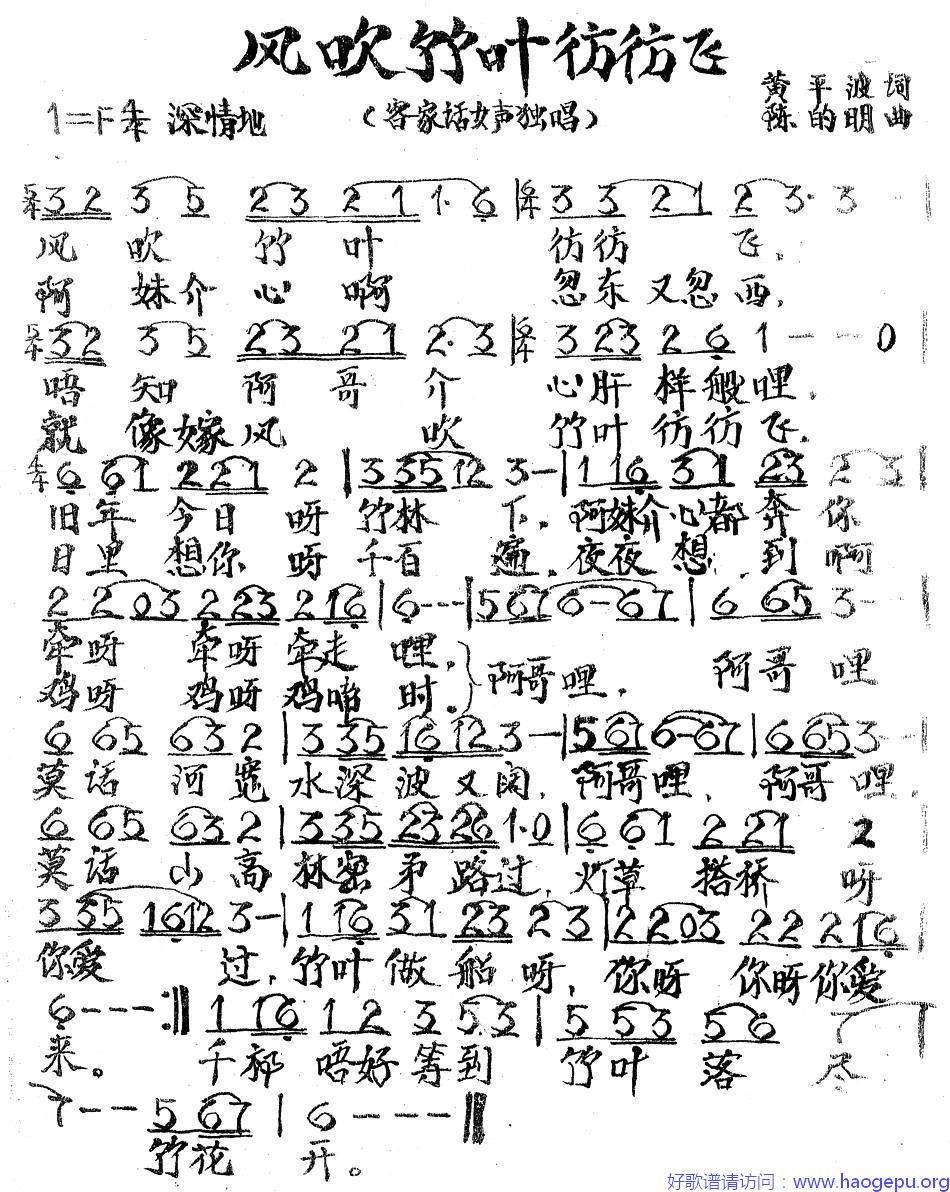 风吹竹叶彷彷飞
黄平波词
1=F 深情地
（客家话女声独唱）
陈的明曲
5/4 3 2 3 5 2 3 2 1 1· 6 | 3 3 2 1 2 3· 3 |
风吹竹叶彷彷飞.
阿妹介心啊忽东又忽西.
5/4 3 2 3 5 2 3 2 1 2· 3 | 3 2 3 2 6 1 - - 0 |
唔知阿哥介心肝样般哩.
就像嫁风吹竹叶彷彷飞.
6 6 1 2 2 1 2 | 3 3 5 1 2 3 - | 1 1 6 3 1 2 3 2 3 |
旧年今日呀竹林下.阿妹介心都奔你
日里想你呀千百遍.夜夜想到啊
2 2 0 3 2 2 3 2 1 6 | 6 - - - | 5 6 7 6 - 6 7 | 6 6 5 3 - - |
牵呀牵呀牵走哩. 阿哥哩. 阿哥哩
鸡呀鸡呀鸡啼时.
6 6 5 6 3 2 | 3 3 5 1 6 1 2 3 - | 5 6 7 6 - 6 7 | 6 6 5 3 - - |
莫话河宽水深波又阔.阿哥哩.阿哥哩.
6 6 5 6 3 2 | 3 3 5 2 3 2 6 1· 0 | 6 6 1 2 2 1 2 |
莫话山高林密冇路过.灯草搭桥呀
3 3 5 1 6 1 2 3 - | 1 1 6 3 1 2 3 2 3 | 2 2 0 3 2 2 2 1 6 |
你爱过.竹叶做船呀.你呀你呀你爱
6 - - - :|| 1 1 6 1 2 3 5 3 | 5 5 3 5 6 7 |
来。千祈唔好等到竹叶落尽
7 - - 5 6 7 | 6 - - - ||
竹花开。
好歌谱请访问：www.haogepu.org